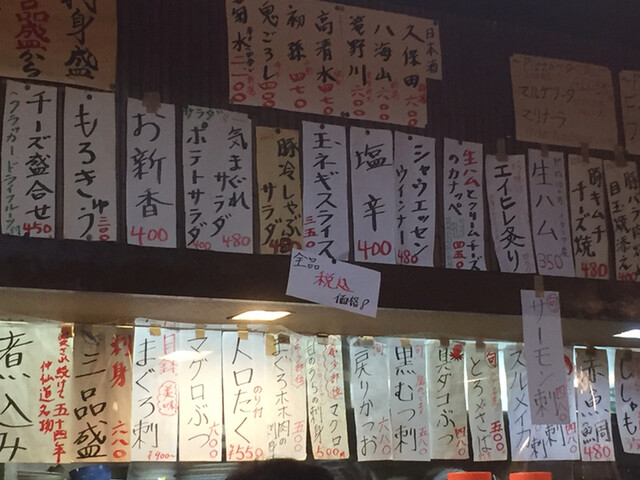 刺身盛
三品盛から
日本酒
久保田 六〇〇
八海山 六〇〇
滝野川 六〇〇
高清水 四七〇
初孫 四七〇
鬼ごろし 四〇〇
菊水 二一〇〇
マルゲリータ
マリナーラ
チーズ盛合せ 450
クラッカードライフルーツ付
もろきゅう 三〇〇
お新香 400
サラダ
ポテトサラダ 400
気まぐれサラダ 480
豚冷しゃぶサラダ 480
玉ネギスライス 三五〇
塩辛 400
シャウエッセンウインナー 480
生ハムとクリームチーズのカナッペ 四五〇
エイヒレ炙り
生ハム 350
豚キムチチーズ焼 480
目玉焼添え
全品
税込
価格
煮込み
愛され続けて五十四年
仲仙道名物
刺身
三品盛 六八〇
まぐろ刺
マグロぶつ
トロたく ￥550
のり付
マグロ 500
戻りかつお 六八〇
黒むつ刺 五八〇
真ダコぶつ 四八〇
旬
とろさば
スルメイカ刺
旬
サーモン刺
赤魚鯛 480
ししゃも